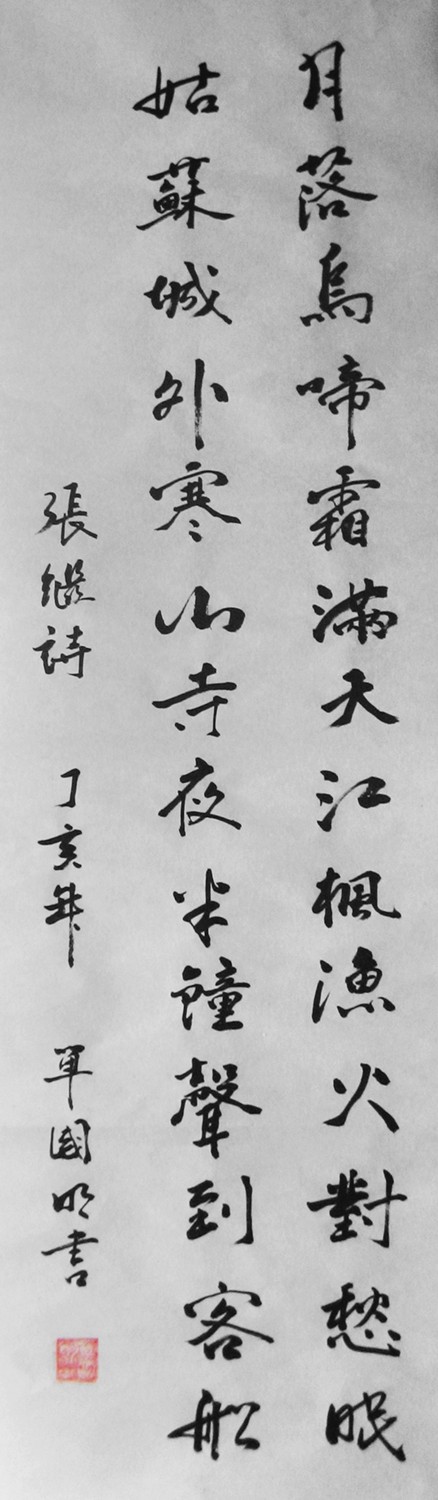 月落烏啼霜滿天江楓漁火對愁眠
姑蘇城外寒山寺夜半鐘聲到客船
張繼詩 丁亥年 單國明書